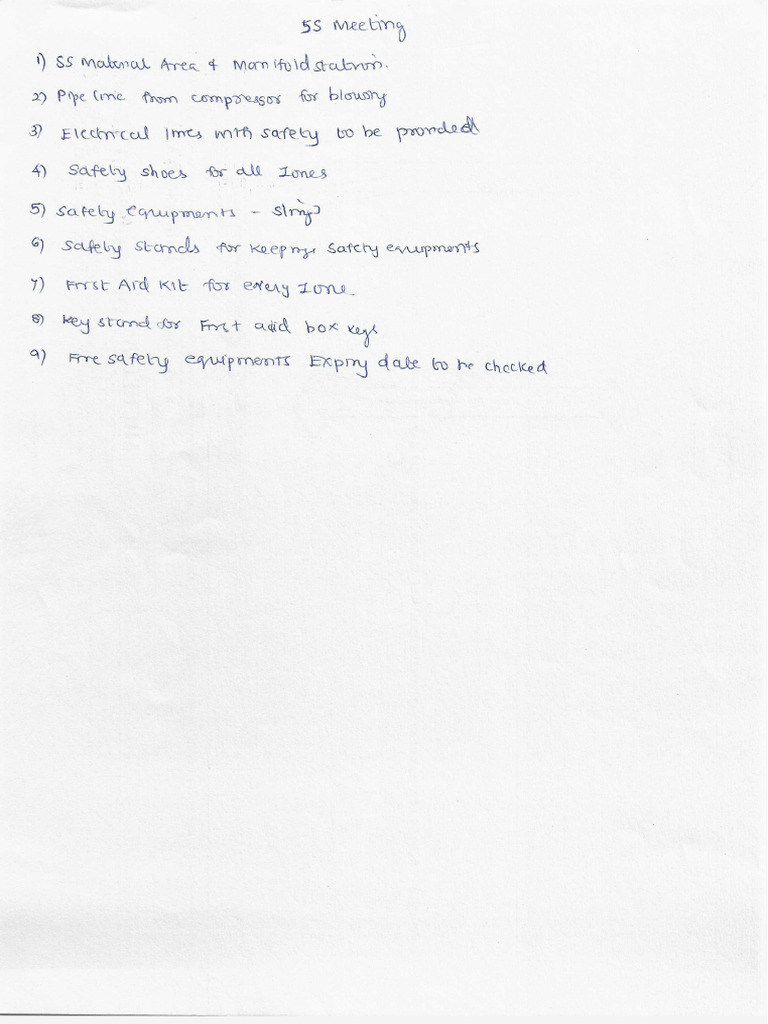 5S Meeting
1) SS Material Area & Manifold station.
2) Pipe line from compressor for blowing
3) Electrical lines with safety to be provided
4) Safety shoes for all Zones
5) Safety equipments - slings
6) Safety stands for keeping safety equipments
7) First Aid Kit for every Zone
8) Key stand for First aid box keys
9) Fire safety equipments Expiry date to be checked